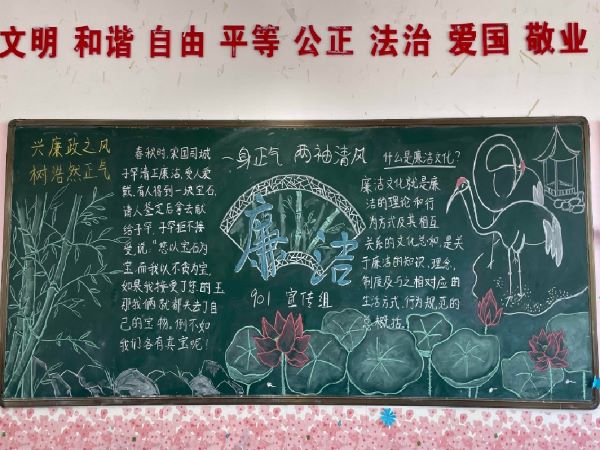 文明 和谐 自由 平等 公正 法治 爱国 敬业
兴廉政之风
树浩然正气
春秋时,宋国司城
子罕清正廉洁,受人爱
戴。有人得到一块宝石,
请人鉴定后拿去献
给子罕,子罕拒不接
受,说:"您以宝石为
宝,而我以不贪为宝。
如果我接受了您的玉,
那我俩就都失去了自
己的宝物,倒不如
我们各有其宝呢!
一身正气 两袖清风
廉洁
901 宣传组
什么是廉洁文化?
廉洁文化就是廉
洁的理论和行
为方式及其相互
关系的文化总和,是关
于廉洁的知识、理念、
制度及与之相对应的
生活方式、行为规范的
总概括。